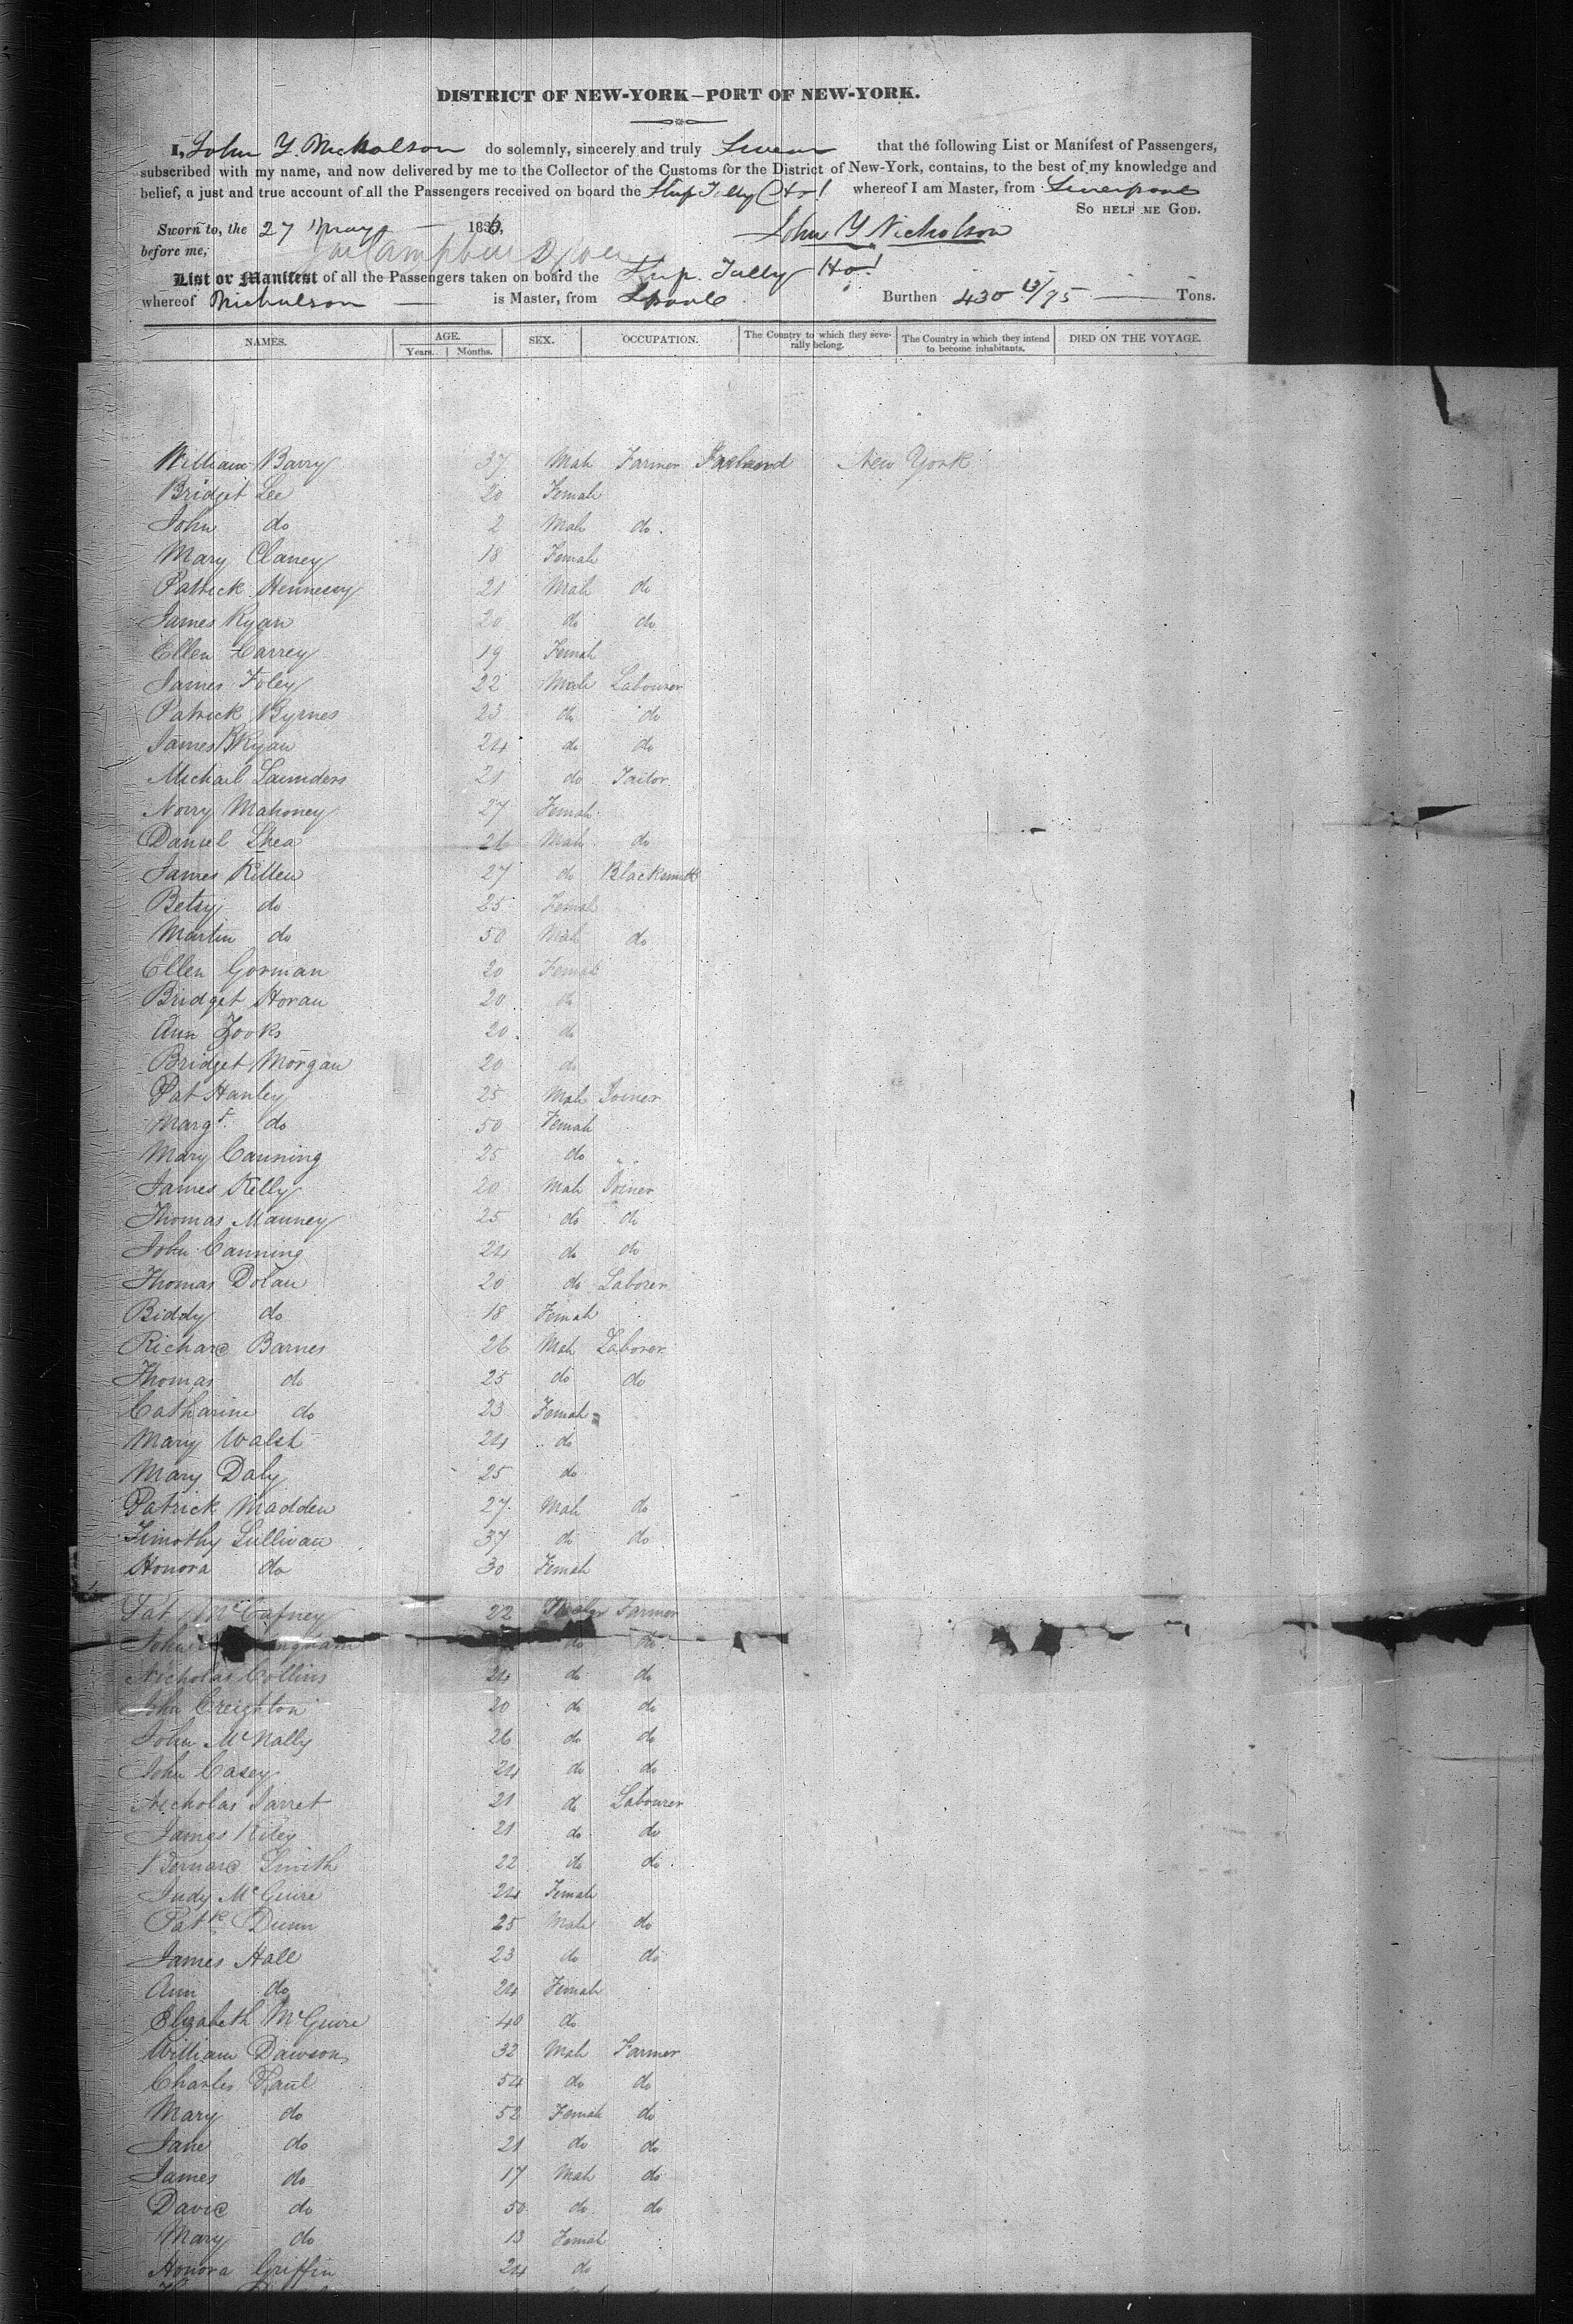 DISTRICT OF NEW-YORK—PORT OF NEW-YORK.
I, John Y. Nicholson do solemnly, sincerely and truly Swear that the following List or Manifest of Passengers,
subscribed with my name, and now delivered by me to the Collector of the Customs for the District of New-York, contains, to the best of my knowledge and
belief, a just and true account of all the Passengers received on board the Ship Tally Ho! whereof I am Master, from Liverpool
SO HELP ME GOD.
Sworn to, the 27 May 1836,
John Y Nicholson
before me,
List or Manifest of all the Passengers taken on board the Ship Tally Ho!
whereof Nicholson is Master, from Lpoole Burthen 430 13/95 Tons.
NAMES. AGE. SEX. OCCUPATION. The Country to which they severally belong. The Country in which they intend to become inhabitants. DIED ON THE VOYAGE.
Years. Months.
William Barry 37 Male Farmer New York
Bridget Lee 20 Female
John do 2 Male do
Mary Claney 18 Female
Patrick Hennessy 21 Male do
James Ryan 20 do do
Ellen Carrey 19 Female
James Foley 22 Male Labourer
Patrick Byrnes 23 do do
James Ryan 24 do do
Michael Saunders 21 do Tailor
Norry Mahoney 27 Female
Daniel Shea 26 Male do
James Killen 27 do Blacksmith
Betsy do 25 Female
Martin do 50 Male do
Ellen Gorman 20 Female
Bridget Horan 20 do
Ann Zooks 20 do
Bridget Morgan 20 do
Pat Hanley 25 Male Joiner
Margt. do 50 Female
Mary Canning 25 do
James Kelly 20 Male Joiner
Thomas Manney 25 do do
John Canning 24 do do
Thomas Dolan 20 do Laborer
Biddy do 18 Female
Richard Barnes 26 Male Laborer
Thomas do 25 do do
Catharine do 23 Female
Mary Walsh 24 do
Mary Daly 25 do
Patrick Madden 27 Male do
Timothy Sullivan 37 do do
Honora do 30 Female
Pat McCafney 22 Male Farmer
John do do
Nicholas Collins 24 do do
John Creighton 20 do do
John McNally 26 do do
John Casey 24 do do
Nicholas Jarret 21 do Labourer
James Riley 21 do do
Bernard Smith 22 do do
Judy McGuire 24 Female
Patk Dunn 25 Male do
James Hall 23 do do
Ann do 24 Female
Elizabeth McGuire 40 do
William Dawson 32 Male Farmer
Charles Paul 54 do do
Mary do 52 Female do
Jane do 21 do do
James do 17 Male do
David do 50 do do
Mary do 13 Female
Honora Griffin 24 do